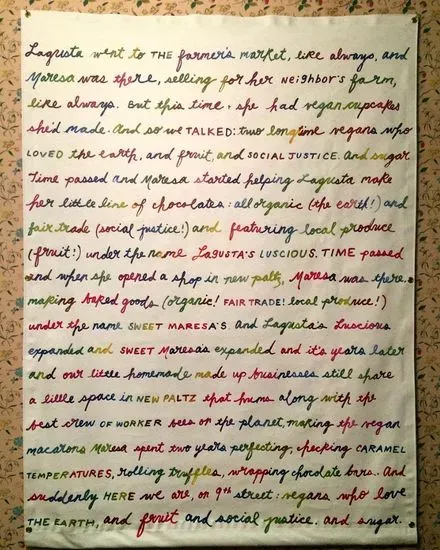 Lagusta went to THE farmer's market, like always, and
Maresa was there, selling for her NEIGHBOR'S farm,
like always. But this time, she had vegan cupcakes
she'd made. And so we TALKED: two longtime vegans who
LOVED the earth, and fruit, and SOCIAL JUSTICE. And sugar.
Time passed and Maresa started helping Lagusta make
her little line of chocolates: all organic (the earth!) and
fair trade (social justice!) and featuring local produce
(fruit!) under the name LAGUSTA'S LUSCIOUS. TIME passed
and when she opened a shop in new paltz, Maresa was there.
making baked goods (organic! FAIR TRADE! local produce!)
under the name SWEET MARESA'S. And Lagusta's Luscious
expanded and SWEET Maresa's expanded and it's years later
and our little homemade made up businesses still share
a little space in NEW PALTZ that hums along with the
best crew OF WORKER bees on the planet, making the vegan
macarons Maresa spent two years perfecting, checking CARAMEL
TEMPERATURES, rolling truffles, wrapping chocolate bars.. And
suddenly HERE we are, on 9th street: vegans who love
THE EARTH, and fruit and social justice. and sugar.